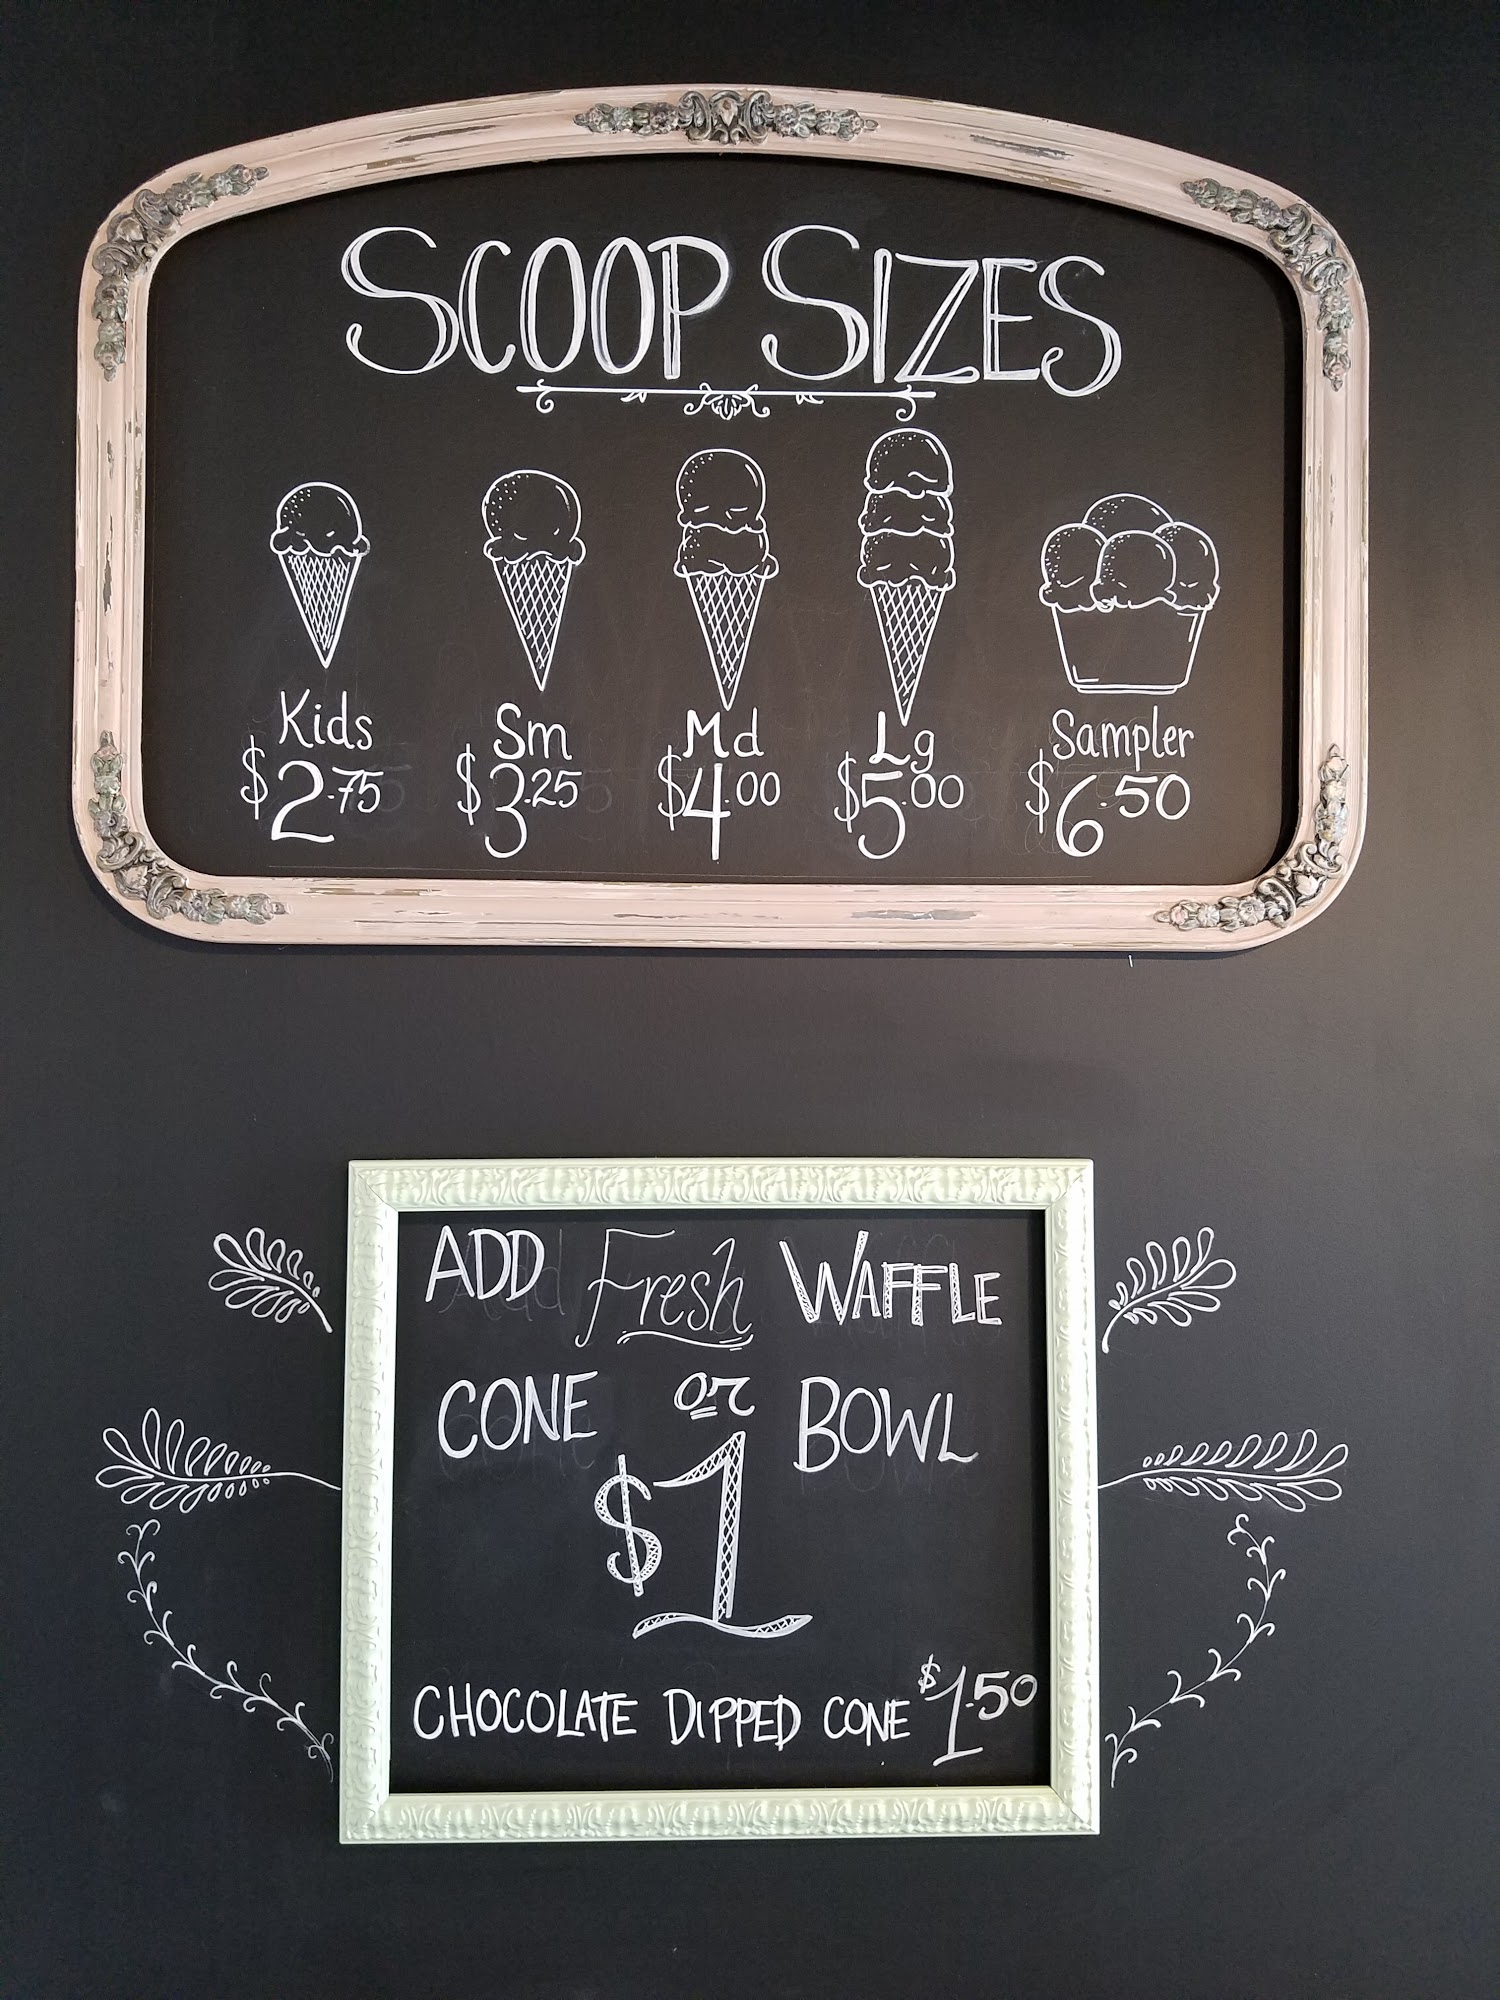 SCOOP SIZES
Kids Sm Md Lg Sampler
$2.75 $3.25 $4.00 $5.00 $6.50
ADD Fresh WAFFLE
CONE or BOWL
$1
CHOCOLATE DIPPED CONE $1.50